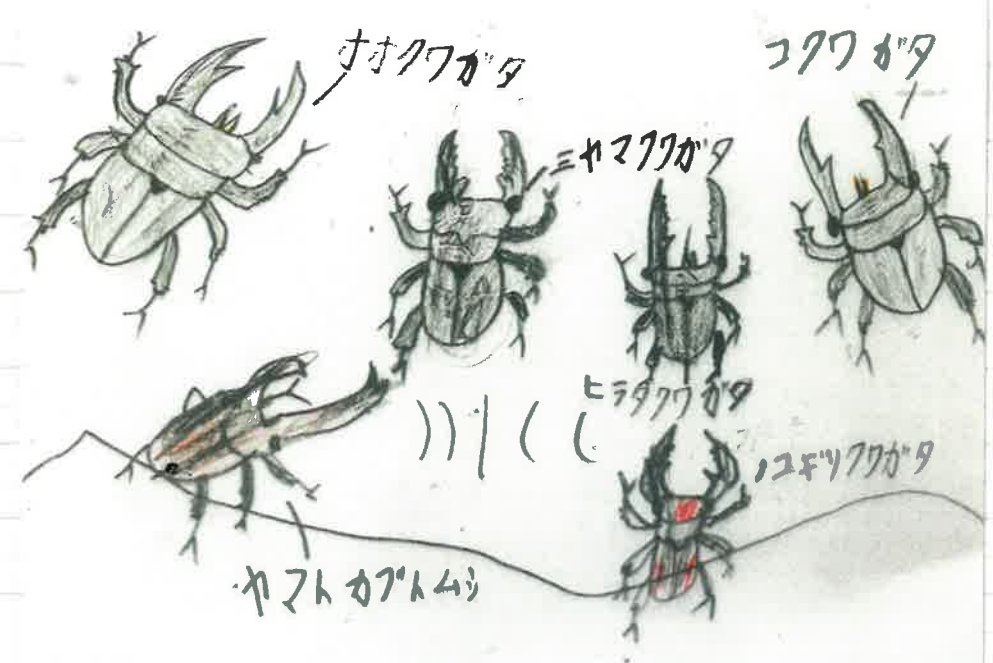 オオクワガタ
コクワガタ
ミヤマクワガタ
ヒラタクワガタ
ノコギリクワガタ
ヤマトカブトムシ